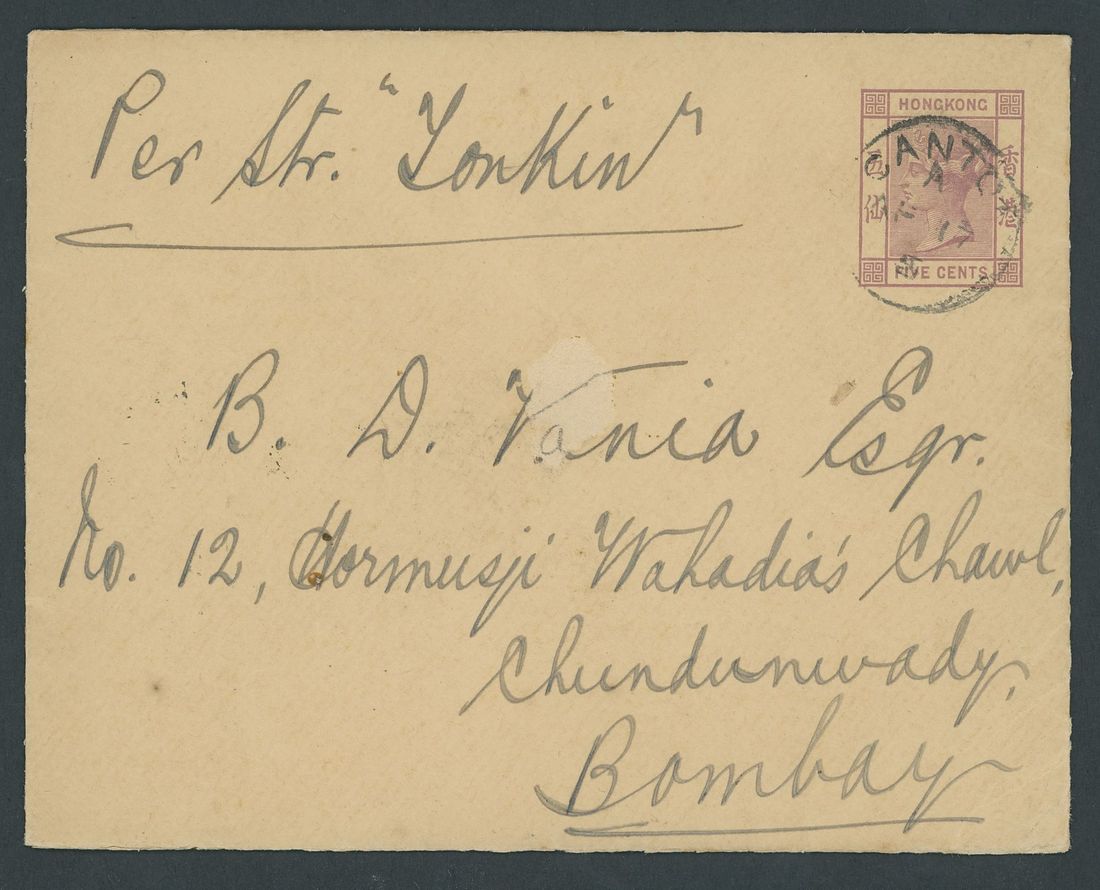 Per Str. "Tonkin"
HONGKONG
香港
五仙
FIVE CENTS
CANTON
A
17
B. D. Vania Esqr.
No. 12, Hormusji Wahadia's Chawl,
Chundunwady,
Bombay